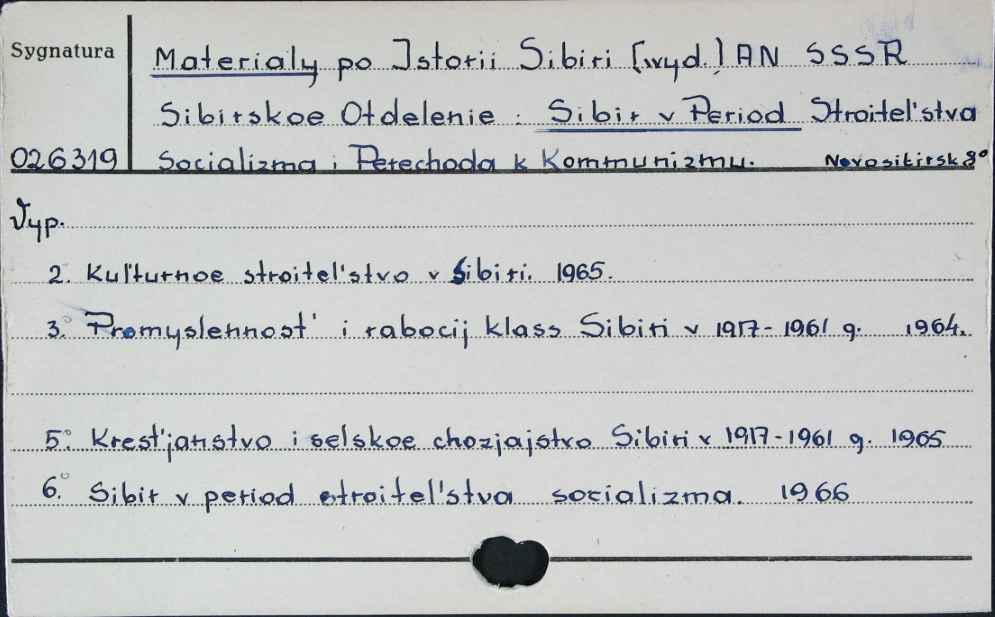 Sygnatura
Materialy po Istorii Sibiri [wyd.] AN SSSR
Sibirskoe Otdelenie : Sibir v Period Stroitel'stva
026319
Socializma i Perechoda k Kommunizmu. Novosibirsk 8°
Vyp.
2. Kul'turnoe stroitel'stvo v Sibiri. 1965.
3. Promyslennost' i rabocij klass Sibiri v 1917-1961 g. 1964.
5. Krest'janstvo i selskoe chozjajstvo Sibiri v 1917-1961 g. 1965
6. Sibir v period stroitel'stva socializma. 1966